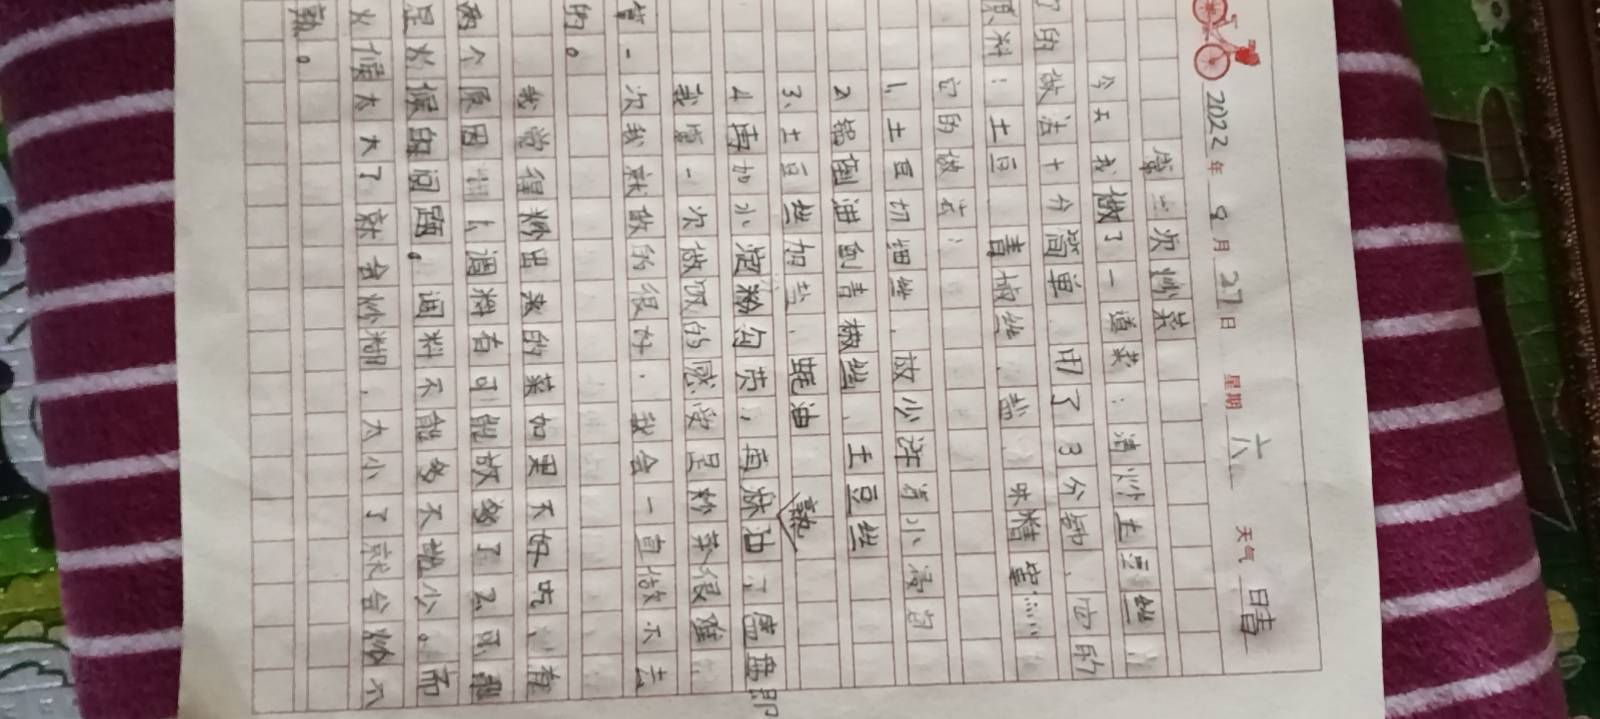 2022年8月27日 星期六 天气晴
第一次炒菜
今天我做了一道菜：清炒土豆丝，
的做法十分简单，用了3分钟，它的
原料：土豆 青椒丝、盐、味精等……
它的做法：
1、土豆切细丝，放少许
2、锅倒油到青椒丝、土豆丝
3、土豆丝加盐、蚝油 熟
4、再加水淀粉勾芡，再
我第一次做饭的感受是炒菜很难，
管一次我就做的很好，我会一直做下去
的。
我觉得炒出来的菜如果不好吃，有
两个原因：1、调料有可能放多了2、可能
是火候的问题。调料不能多不能少。而
火候太大了就会炒糊，太小了就会炒不
熟。